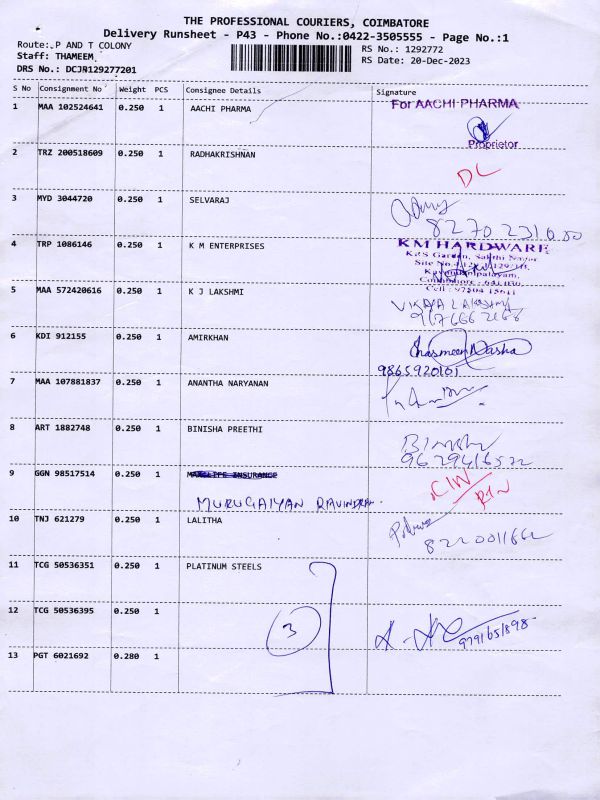 THE PROFESSIONAL COURIERS, COIMBATORE
Delivery Runsheet - P43 - Phone No.:0422-3505555 - Page No.:1
Route: P AND T COLONY
Staff: THAMEEM
DRS No.: DCJR129277201
RS No.: 1292772
RS Date: 20-Dec-2023
S No Consignment No Weight PCS Consignee Details Signature
1 MAA 102524641 0.250 1 AACHI PHARMA For AACHI PHARMA
Proprietor
2 TRZ 200518609 0.250 1 RADHAKRISHNAN DL
3 MYD 3044720 0.250 1 SELVARAJ
4 TRP 1086146 0.250 1 K M ENTERPRISES KM HARDWARE
5 MAA 572420616 0.250 1 K J LAKSHMI
6 KDI 912155 0.250 1 AMIRKHAN
9865920101
7 MAA 107881837 0.250 1 ANANTHA NARYANAN
8 ART 1882748 0.250 1 BINISHA PREETHI
9629416522
9 GGN 98517514 0.250 1 MAXLIFE INSURANCE
MURUGAIYAN
10 TNJ 621279 0.250 1 LALITHA
11 TCG 50536351 0.250 1 PLATINUM STEELS
12 TCG 50536395 0.250 1 3 9791651898
13 PGT 6021692 0.280 1